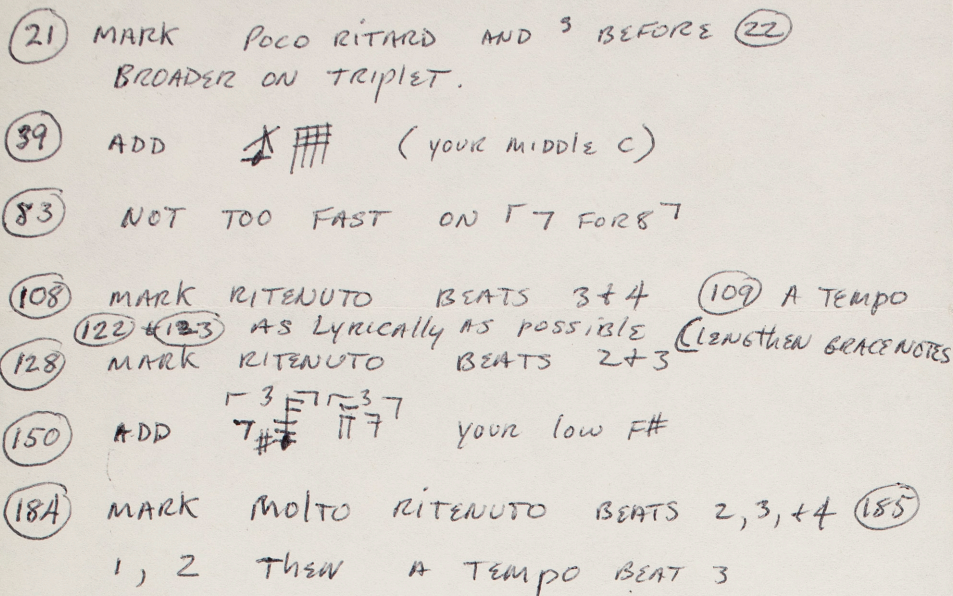 21 MARK POCO RITARD AND 3 BEFORE 22
BROADER ON TRIPLET.
39 ADD (YOUR MIDDLE C)
83 NOT TOO FAST ON ⌜7 FOR 8⌝
108 MARK RITENUTO BEATS 3 & 4 109 A TEMPO
122 & 123 AS LYRICALLY AS POSSIBLE (LENGTHEN GRACE NOTES
128 MARK RITENUTO BEATS 2 & 3
150 ADD 3 3 YOUR LOW F#
184 MARK MOLTO RITENUTO BEATS 2, 3, & 4 185
1, 2 THEN A TEMPO BEAT 3